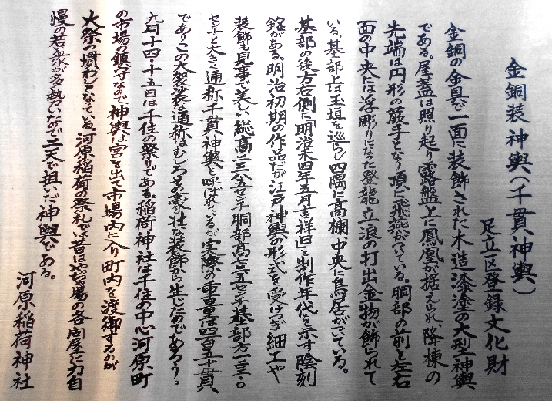 金銅装神輿(千貫神輿)
足立区登録文化財
金銅の金具で一面に装飾された木造漆塗の大型神輿
である。屋蓋は照り起り、露盤上に鳳凰が据えられ、降棟の
先端は円形の蕨手となり、頂に飛燕がついている。胴部の前と左右
面の中央には浮彫りになった登龍、立浪の打出金物が飾られて
いる。基部上には玉垣を巡し、四隅に高欄、中央に鳥居がついている。
基部の後方右側に明治末四年五月吉祥日と制作年代を示す陰刻
銘がある。明治初期の作品だが江戸神輿の形式を受けつぎ細工や
装飾も見事で美しい。総高二三八・五センチ、胴部高さ五五センチ、基部各一三〇
センチと大きく通称千貫神輿と呼ばれているが、実際の重量は四百五十貫
である。この大祭装を通称はむしろその豪壮な装飾から生じた名であろう。
九月十四・十五日は千住の祭りである。稲荷神社は千住の中心河原町
の市場の鎮守なので神輿は宮を出て市場内に入り町内を渡御するのが
大祭の慣わしとなっている。河原稲荷祭礼では昔は地者場の各店屋に力自
慢の若衆が多勢いたので二天で担いだ神輿である。
河原稲荷神社